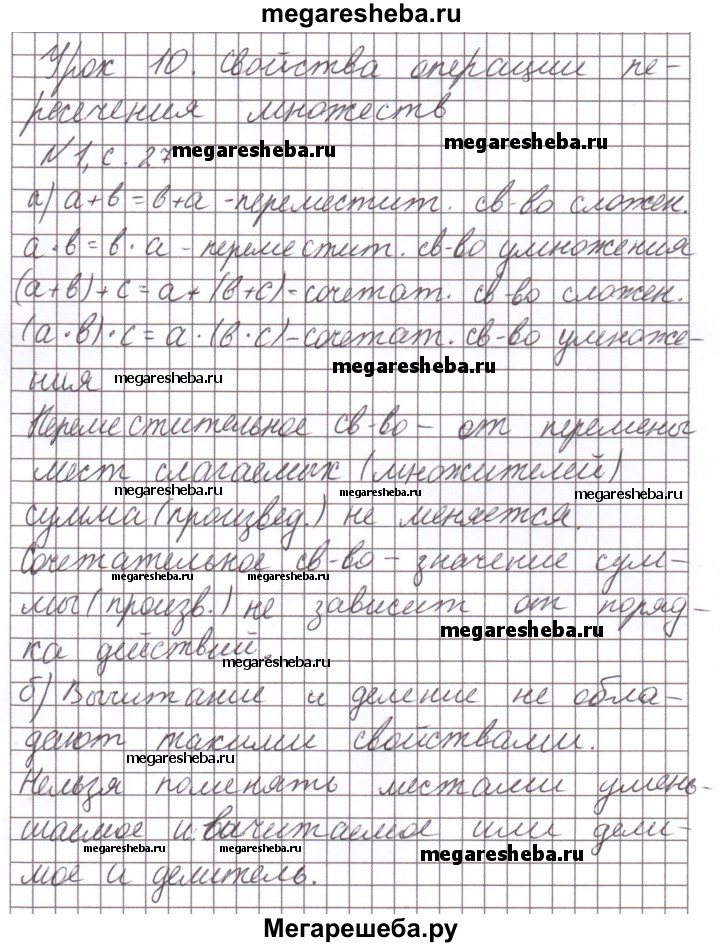 megaresheba.ru
Урок 10. Свойства операции пе-
ресечения множеств
megaresheba.ru
N 1, с. 27 megaresheba.ru
а) а+в = в+а -переместит. св-во сложен.
а · в = в · а - переместит. св-во умножения
(а+в)+с = а+(в+с)-сочетат. св-во сложен.
(а·в)·с = а·(в·с)-сочетат. св-во умноже-
megaresheba.ru
ния megaresheba.ru
Переместительное св-во - от перемены
мест слагаемых (множителей)
megaresheba.ru megaresheba.ru megaresheba.ru
сумма (произвед.) не меняется.
Сочетательное св-во - значение сум-
megaresheba.ru megaresheba.ru
мы (произв.) не зависит от поряд-
megaresheba.ru
ка действий.
megaresheba.ru
б) Вычитание и деление не обла-
дают такими свойствами.
megaresheba.ru
Нельзя поменять местами умень-
шаемое и вычитаемое или дели-
megaresheba.ru megaresheba.ru megaresheba.ru
мое и делитель.
Мегарешеба.ру